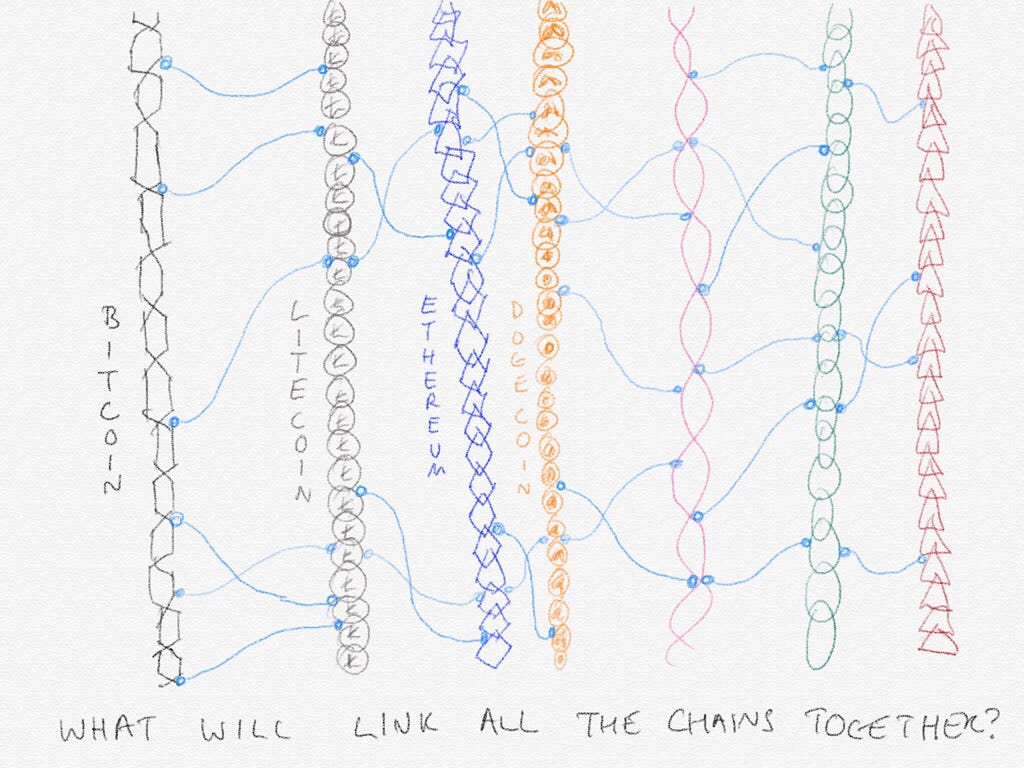 BITCOIN
LITECOIN
ETHEREUM
DOGECOIN
WHAT WILL LINK ALL THE CHAINS TOGETHER?